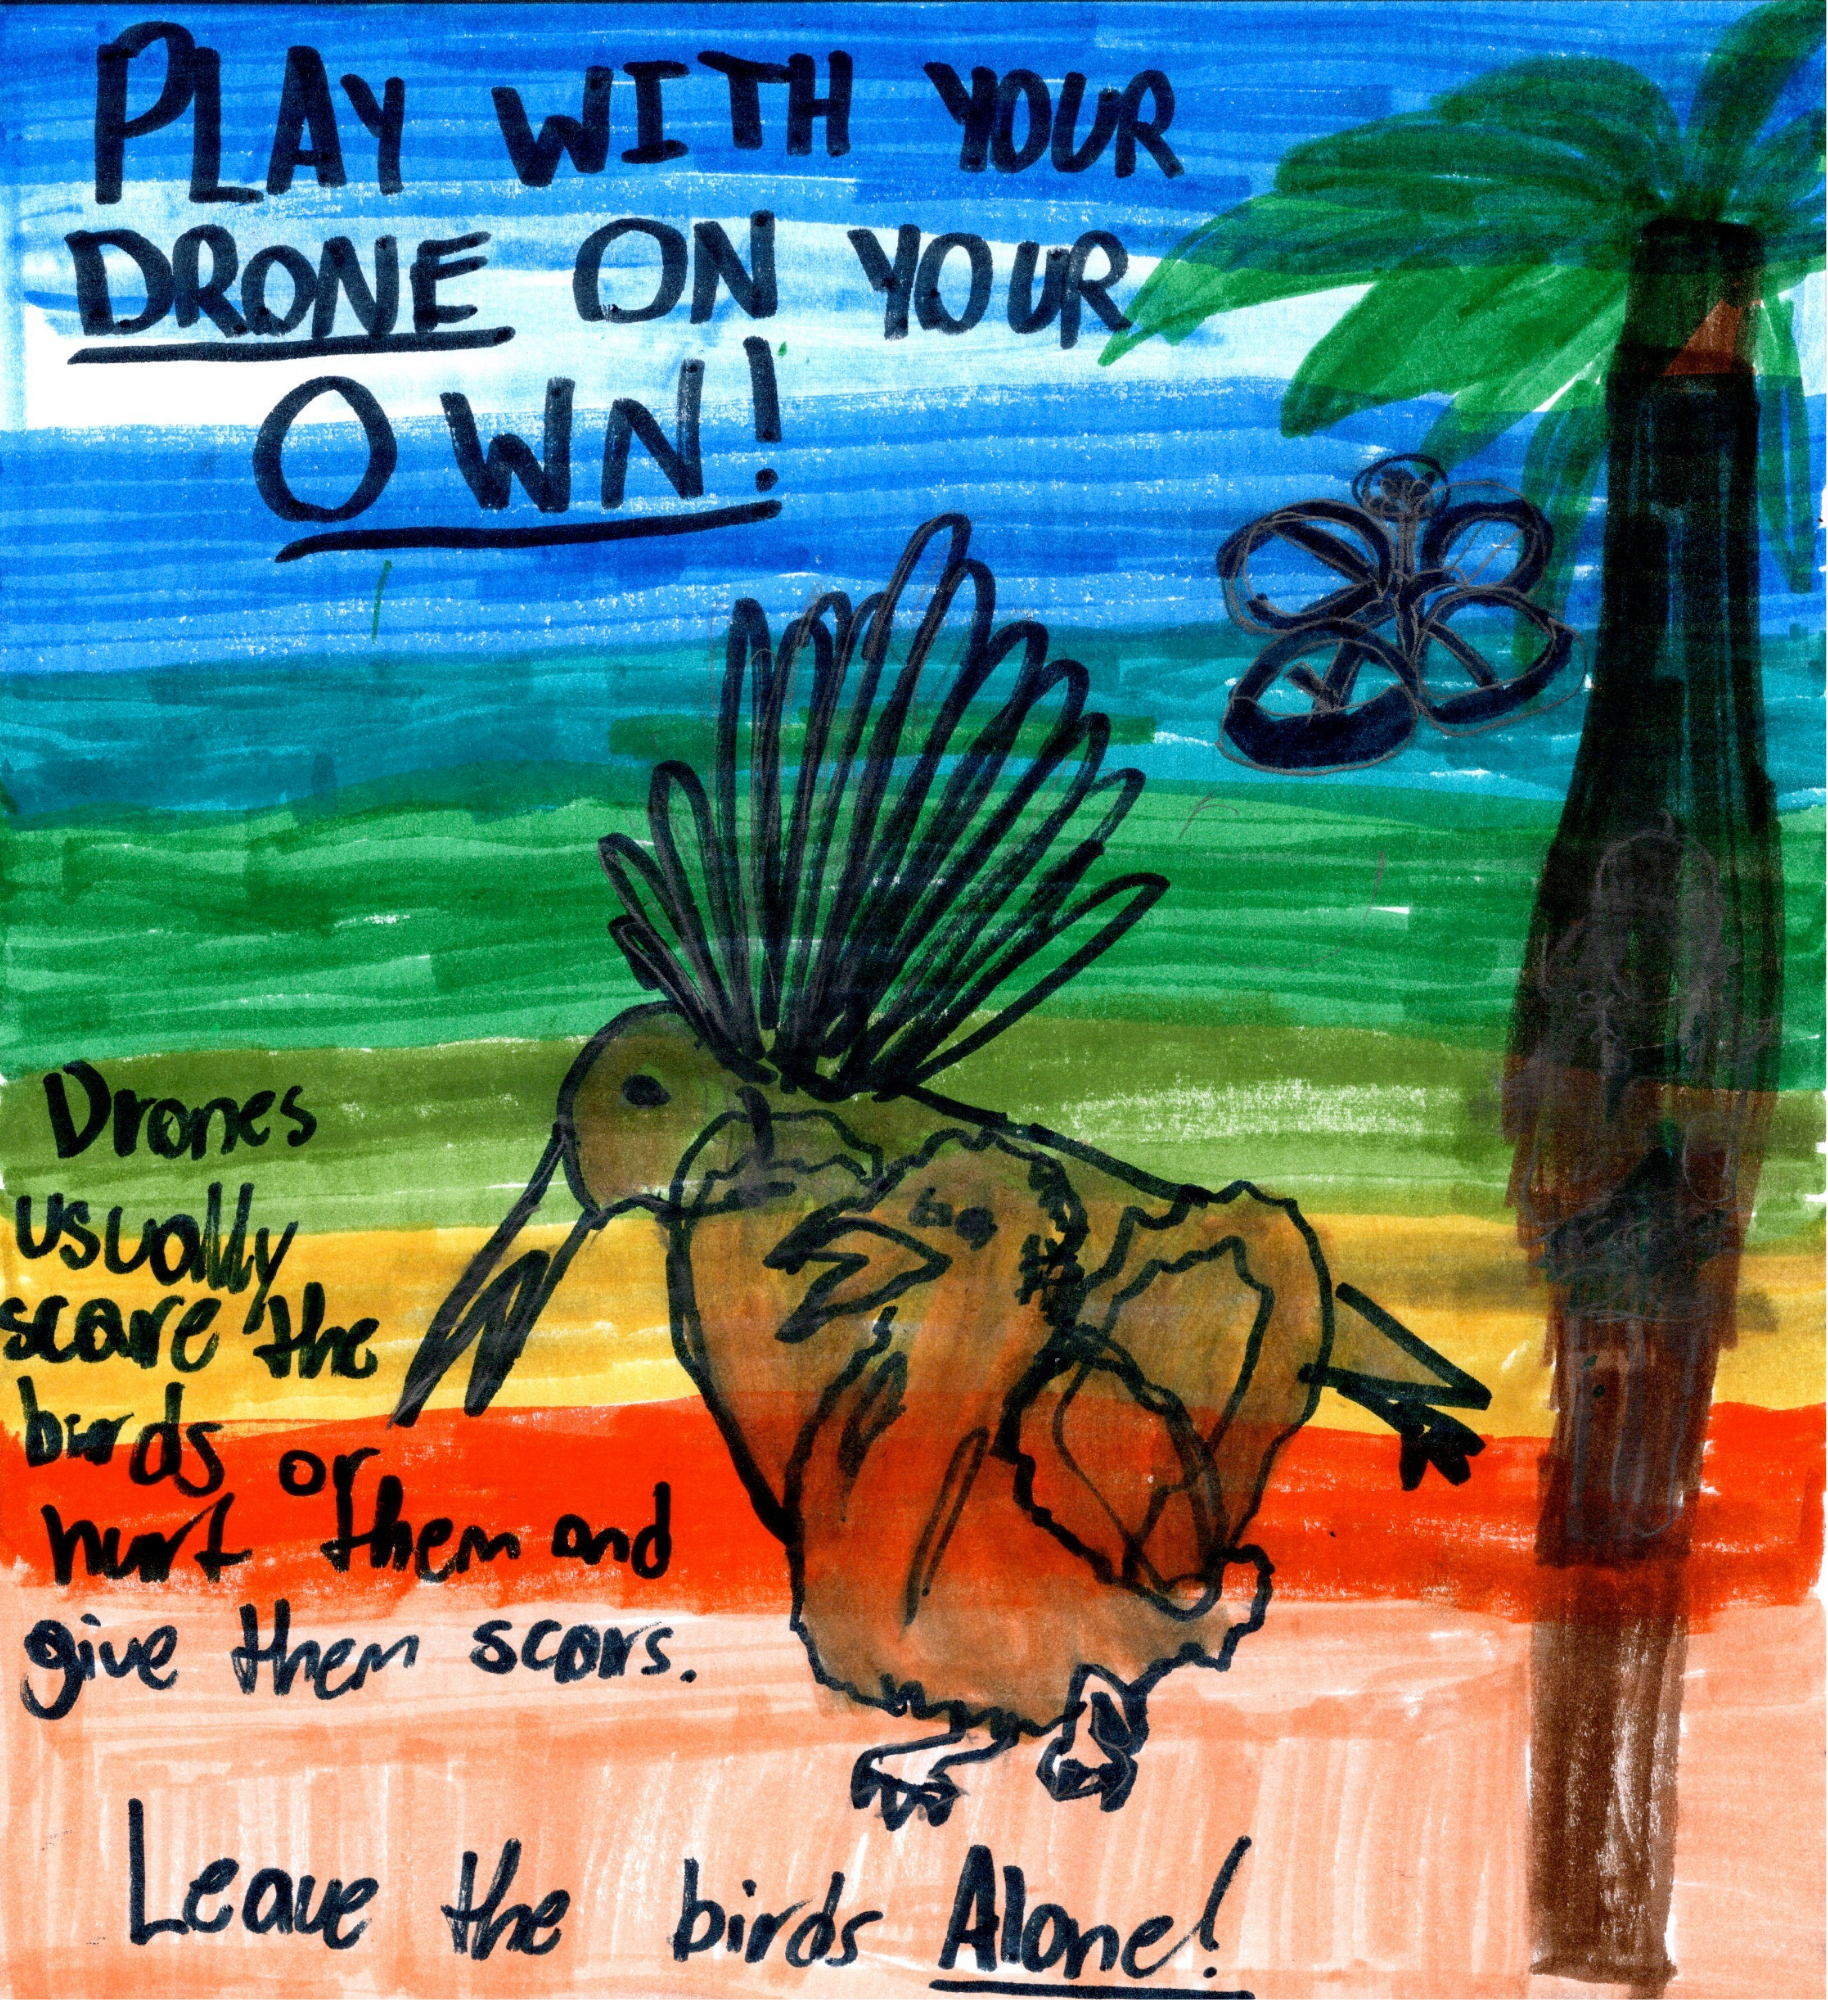 PLAY WITH YOUR
DRONE ON YOUR
OWN!
Drones
usually
scare the
birds or
hurt them and
give them scars.
Leave the birds Alone!